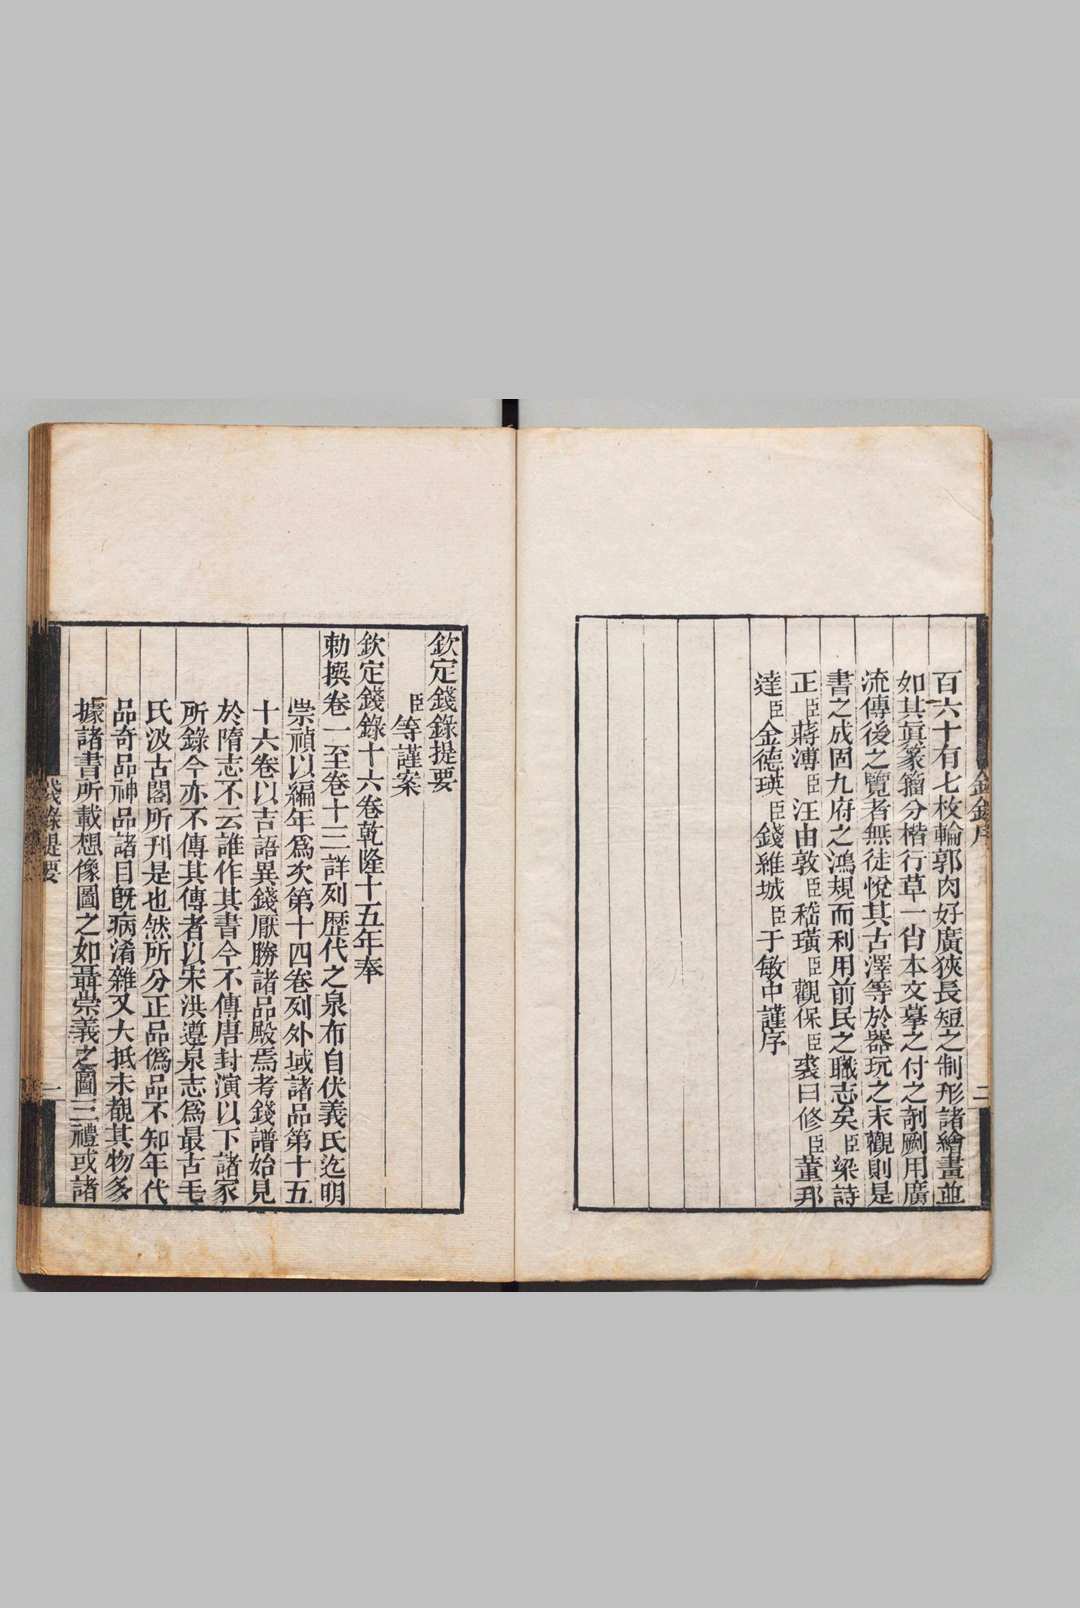 百六十有七枚輪郭肉好廣狹長短之制形諸繪畫並
如其眞篆籀分楷行草一仍本文摹之付之剞劂用廣
流傳後之覽者無徒悅其古澤等於器玩之末觀則是
書之成固九府之鴻規而利用前民之職志矣臣梁詩
正臣蔣溥臣汪由敦臣嵇璜臣觀保臣裘曰修臣董邦
達臣金德瑛臣錢維城臣于敏中謹序
錢錄序
二
欽定錢錄提要
臣等謹案
欽定錢錄十六卷乾隆十五年奉
勅撰卷一至卷十三詳列歷代之泉布自伏羲氏迄明
崇禎以編年爲次第十四卷列外域諸品第十五
十六卷以吉語異錢厭勝諸品殿焉考錢譜始見
於隋志不云誰作其書今不傳唐封演以下諸家
所錄今亦不傳其傳者以宋洪遵泉志爲最古毛
氏汲古閣所刊是也然所分正品僞品不知年代
品奇品神品諸目旣病淆雜又大抵未覩其物多
據諸書所載想像圖之如聶崇義之圖三禮或諸
錢錄提要
一